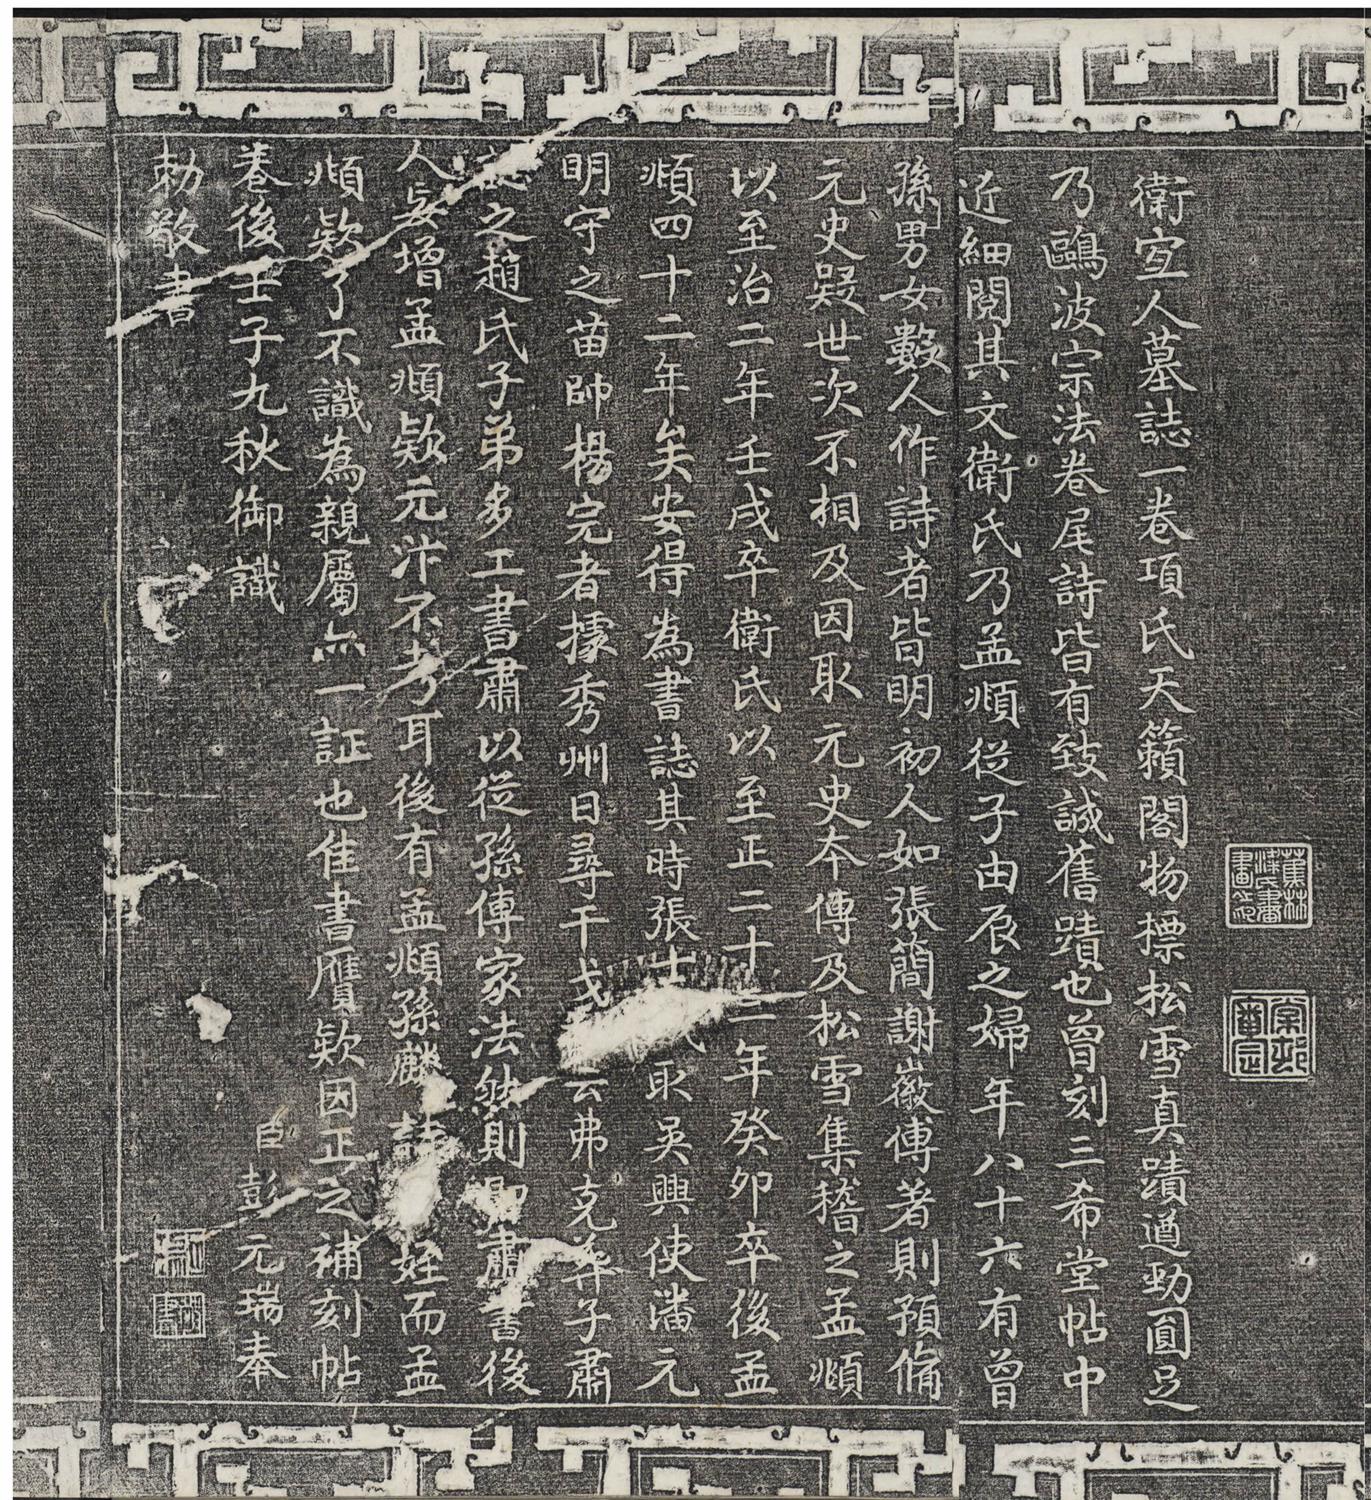 蕉林
梁氏書
畫之印
衛宜人墓誌一卷項氏天籟閣物標松雪真蹟遒勁圓足
乃鷗波宗法卷尾詩皆有致誠舊蹟也曾刻三希堂帖中
近細閱其文衛氏乃孟頫從子由辰之婦年八十六有曾
孫男女數人作詩者皆明初人如張簡謝徽傅著則預脩
元史嶷世次不相及因取元史本傳及松雪集稽之孟頫
以至治二年壬戌卒衛氏以至正二十三年癸卯卒後孟
頫四十二年矣安得為書誌其時張士取吳興使潘元
明守之苗帥楊完者據秀州日尋干戈云弗克葬子肅
誌之趙氏子弟多工書肅以從孫傳家法然則即肅書後
人妄增孟頫欵元汴不考耳後有孟頫孫麟詩姪而孟
頫欵了不識為親屬亦一証也隹書贗欵因正之補刻帖
卷後壬子九秋御識
臣彭元瑞奉
勅敬書